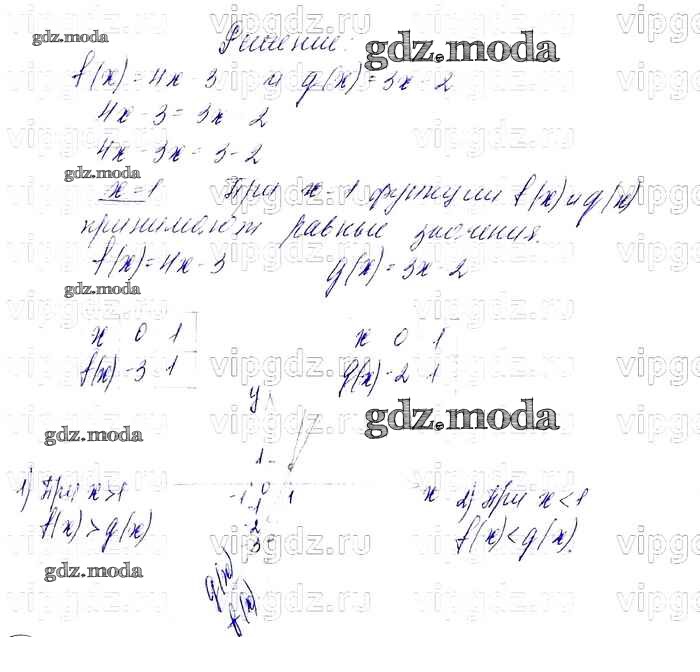 Решение.
gdz.moda
gdz.moda
f(x) = 4x - 3 и g(x) = 3x - 2
4x - 3 = 3x - 2
4x - 3x = 3 - 2
gdz.moda
x = 1 При x = 1 функции f(x) и g(x)
принимают равные значения.
f(x) = 4x - 3 g(x) = 3x - 2
gdz.moda
x 0 1 x 0 1
f(x) -3 1 g(x) -2 1
y
gdz.moda
gdz.moda
1
1) При x > 1 -1 0 1 x 2) При x < 1
f(x) > g(x) f(x) < g(x).
-1
-2
-3
gdz.moda
gdz.moda
g(x)
f(x)
vipgdz.ru